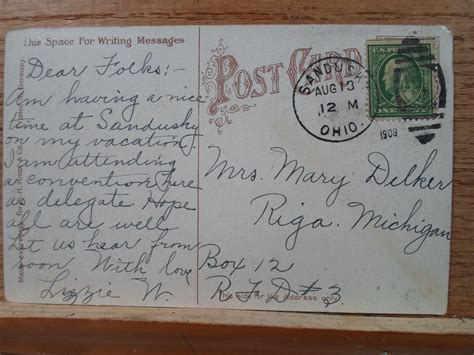 This Space For Writing Messages
POST CARD
Dear Folks:-
Am having a nice
time at Sandusky
on my vacation
I am attending
a convention here
as delegate Hope
all are well.
Let us hear from
soon. With love
Lizzie W.
SANDUSKY
AUG 13
12 M
OHIO.
1908
U.S. POSTAGE
Mrs. Mary Delker
Riga, Michigan
Box 12
R.F.D #3
This side for the Address only.